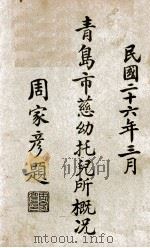 民國二十六年三月
青島市慈幼托兒所概况
周家彥題